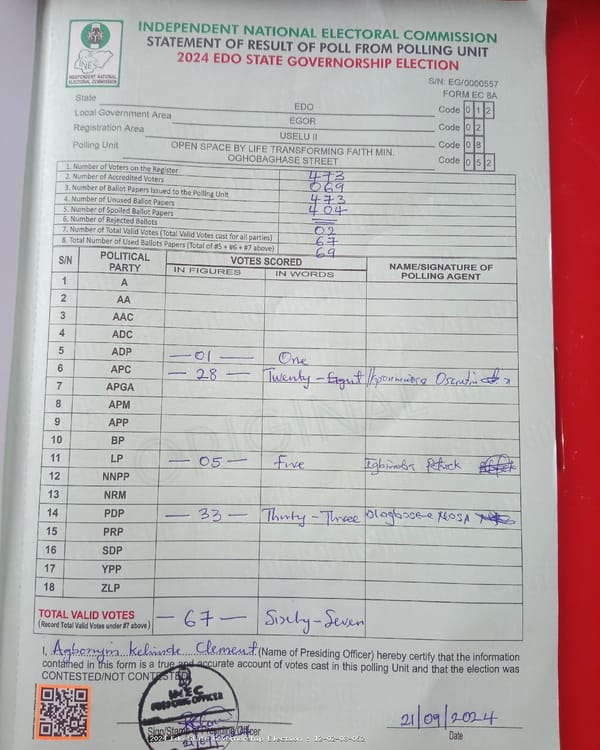 INDEPENDENT NATIONAL ELECTORAL COMMISSION
STATEMENT OF RESULT OF POLL FROM POLLING UNIT
2024 EDO STATE GOVERNORSHIP ELECTION
INEC
INDEPENDENT NATIONAL ELECTORAL COMMISSION
S/N: EG/0000557
FORM EC 8A
State EDO Code 0 1 2
Local Government Area EGOR Code 0 2
Registration Area USELU II Code 0 8
Polling Unit OPEN SPACE BY LIFE TRANSFORMING FAITH MIN. OGHOBAGHASE STREET Code 0 5 2
1. Number of Voters on the Register 473
2. Number of Accredited Voters 069
3. Number of Ballot Papers Issued to the Polling Unit 473
4. Number of Unused Ballot Papers 404
5. Number of Spoiled Ballot Papers
6. Number of Rejected Ballots 02
7. Number of Total Valid Votes (Total Valid Votes cast for all parties) 67
8. Total Number of Used Ballots Papers (Total of #5 + #6 + #7 above) 69
S/N POLITICAL PARTY VOTES SCORED NAME/SIGNATURE OF POLLING AGENT
IN FIGURES IN WORDS
1 A
2 AA
3 AAC
4 ADC
5 ADP — 01 — One
6 APC — 28 — Twenty-Eight
7 APGA
8 APM
9 APP
10 BP
11 LP — 05 — Five
12 NNPP
13 NRM
14 PDP — 33 — Thirty-Three
15 PRP
16 SDP
17 YPP
18 ZLP
ORIGINAL
TOTAL VALID VOTES — 67 — Sixty-Seven
(Record Total Valid Votes under #7 above)
I, Kehinde Clement (Name of Presiding Officer) hereby certify that the information
contained in this form is a true and accurate account of votes cast in this polling Unit and that the election was
CONTESTED/NOT CONTESTED.
INEC
PRESIDING OFFICER
Sign/Stamp of Presiding Officer
21/09/2024
Date
2024 Edo State Governorship Election - 12-02-08-052